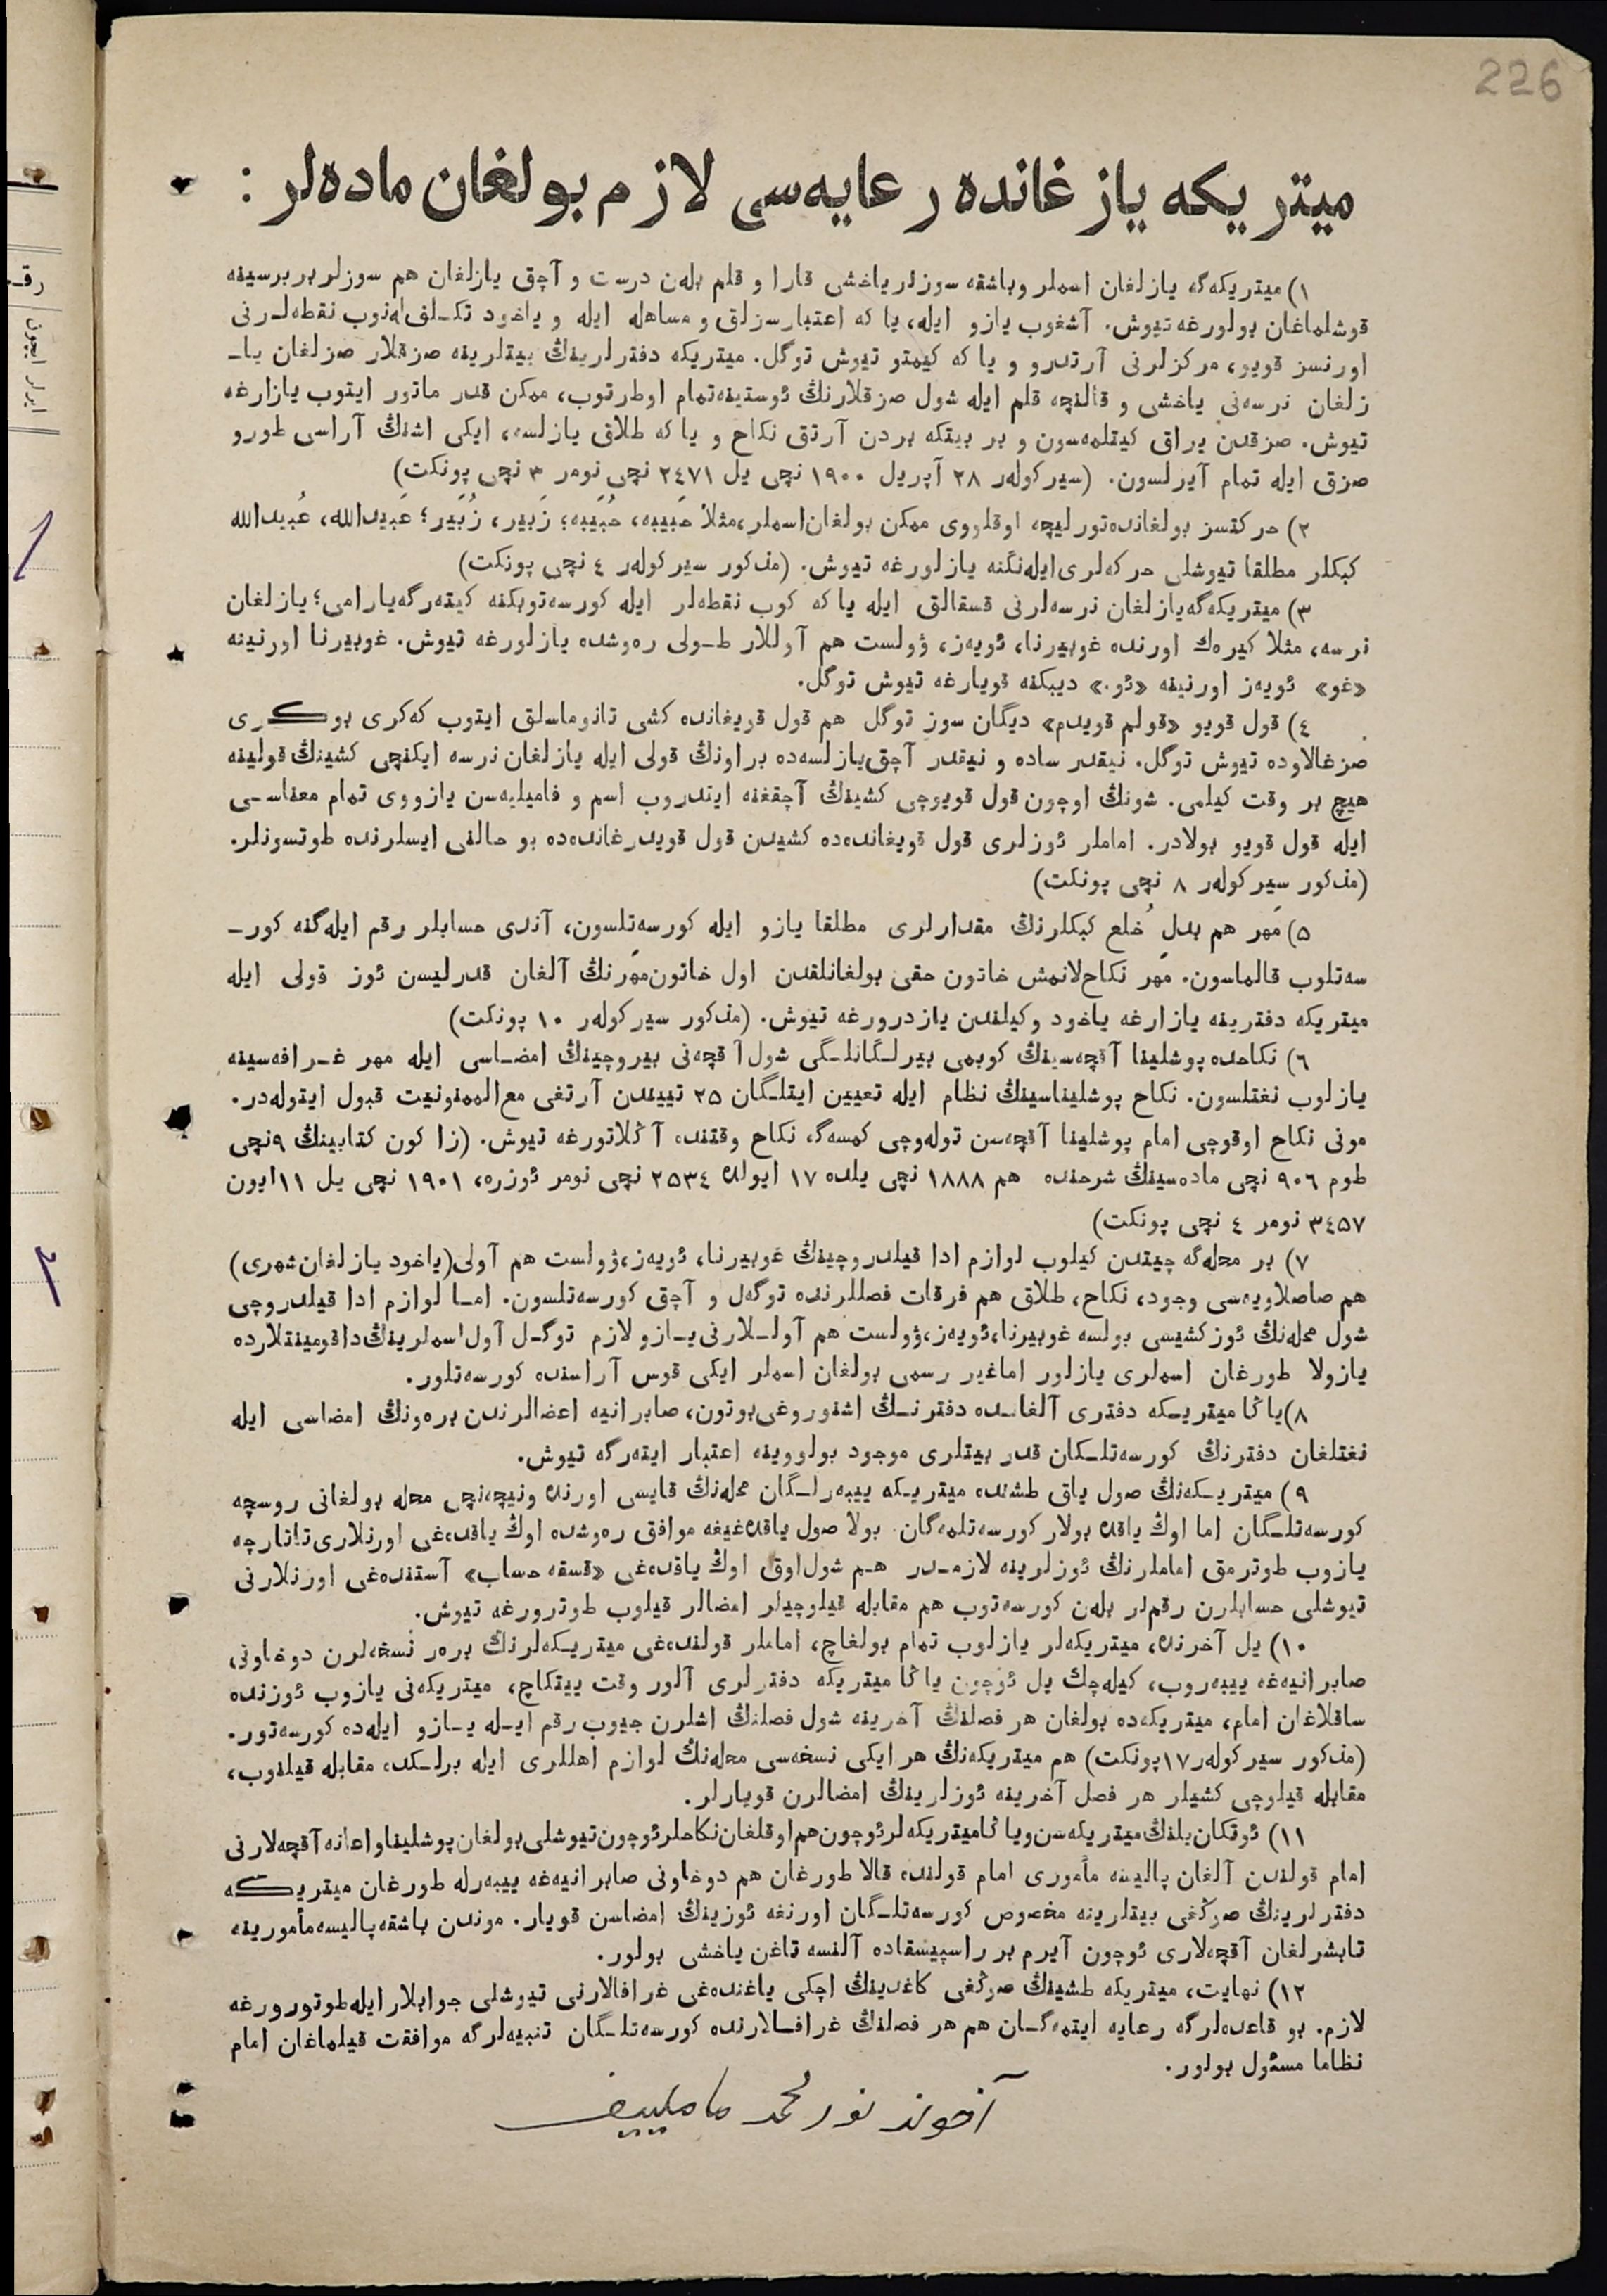 226
میتریکه یازغانده رعایه‌سی لازم بولغان ماده‌لر :
۱) میتریکه‌گه یازلغان اسملر وباشقه سوزلر یاخشی قارا و قلم بله‌ن درست و آچق یازلغان هم سوزلر بربرسینه
قوشلماغان بولورغه تیوش. آشغوب یازو ایله، یا که اعتبارسزلق و مساهله ایله و یاخود تکـلف له‌نوب نقطه‌لـرنی
اورنسز قویو، مرکزلرنی آرتدرو و یا که کیمتو تیوش توگل. میتریکه دفترلرینڭ بیتلرینه صزقلار صزلغان یا–
زلغان نرسه‌نی یاخشی و قالنچه قلم ایله شول صزقلارنڭ ئوستینه‌تمام اوطرتوب، ممکن قدر ماتور ایتوب یازارغه
تیوش. صزقدن یراق کیتلمه‌سون و بر بیتکه بردن آرتق نکاح و یا که طلاق یازلسه، ایکی اشنڭ آراسی طورو
صزق ایله تمام آیرلسون. (سیرکوله‌ر ۲۸ آپریل ۱۹۰۰ نچی یل ۲٤۷۱ نچی نومر ۳ نچی پونکت)
۲) حرکتسز بولغانده‌تورلیچه اوقلووی ممکن بولغان‌اسملر،مثلا حَبیبه، حُبَیبه؛ زَبیر، زُبَیر؛ عَبیدالله، عُبَیدالله
کبکلر مطلقا تیوشلی حرکه‌لری‌ایله‌نگنه یازلورغه تیوش. (مذکور سیرکوله‌ر ٤ نچی پونکت)
۳) میتریکه‌گه‌یازلغان نرسه‌لرنی قسقالق ایله یا که کوب نقطه‌لر ایله کورسه‌توبکنه کیته‌رگه‌یارامی؛ یازلغان
نرسه، مثلا کیره‌ك اورنده غوبیرنا، ئویه‌ز، ۋولست هم آوللار طـولی ره‌وشده یازلورغه تیوش. غوبیرنا اورنینه
«غو» ئویه‌ز اورنینه «ئو.» دیبکنه قویارغه تیوش توگل.
٤) قول قویو «قولم قویدم» دیگان سوز توگل هم قول قویغانده کشی تانوماسلق ایتوب که‌کری بوکری
صزغالاوده تیوش توگل. نیقدر ساده و نیقدر آچق‌یازلسه‌ده براونڭ قولی ایله یازلغان نرسه ایکنچی کشینڭ قولینه
هیچ بر وقت کیلمی. شونڭ اوچون قول قویوچی کشینڭ آچقغنه ایتدروب اسم و فامیلیه‌سن یازووی تمام معناسـی
ایله قول قویو بولادر. اماملر ئوزلری قول قویغانده‌ده کشیدن قول قویدرغانده‌ده بو حالنی ایسلرنده طوتسونلر.
(مذکور سیرکوله‌ر ۸ نچی پونکت)
۵) مَهر هم بدل خُلع کبکلرنڭ مقدارلری مطلقا یازو ایله کورسه‌تلسون، آندی حسابلر رقم ایله‌گنه کور–
سه‌تلوب قالماسون. مَهر نکاح‌لانمش خاتون حقی بولغانلقدن اول خاتون‌مهرنڭ آلغان قدرلیسن ئوز قولی ایله
میتریکه دفترینه یازارغه یاخود وکیلندن یازدرورغه تیوش. (مذکور سیرکوله‌ر ۱۰ پونکت)
٦) نکاحده پوشلینا آقچه‌سینڭ کوبمی بیرلـگانلـگی شول آقچه‌نی بیروچینڭ امضـاسی ایله مهر غـرافه‌سینه
یازلوب نغتلسون. نکاح پوشلیناسینڭ نظام ایله تعیین ایتلـگان ۲۵ تییندن آرتغی مع‌الممنونیت قبول ایتوله‌در.
مونی نکاح اوقوچی امام پوشلینا آقچه‌سن توله‌وچی کمسه‌گه نکاح وقتنده آڭلاتورغه تیوش. (زا کون کتابینڭ ۹نچی
طوم ۹۰٦ نچی ماده‌سینڭ شرحنده هم ۱۸۸۸ نچی یلده ۱۷ ایولده ۲۵۳٤ نچی نومر ئوزره، ۱۹۰۱ نچی یل ۱۱ایون
۳٤۵۷ نومر ٤ نچی پونکت)
۷) بر محله‌گه چیتدن کیلوب لوازم ادا قیلدروچینڭ غوبیرنا، ئویه‌ز،ۋولست هم آولی(یاخود یازلغان‌شهری)
هم صاصلاویه‌سی وجود، نکاح، طلاق هم فرقات فصللرنده توگه‌ل و آچق کورسه‌تلسون. امـا لوازم ادا قیلدروچی
شول محله‌نڭ ئوزکشیسی بولسه غوبیرنا،ئویه‌ز،ۋولست هم آولـلارنی‌یـازو لازم توگـل آول‌اسملرینڭ‌داقومینتلارده
یازولا طورغان اسملری یازلور اماغیر رسمی بولغان اسملر ایکی قوس آراسنده کورسه‌تلور.
۸)یاڭا میتریـکه دفتری آلغانـده دفترنـڭ اشنوروغی‌بوتون، صابرانیه اعضالرندن بره‌ونڭ امضاسی ایله
نغتلغان دفترنڭ کورسه‌تلـکان قدر بیتلری موجود بولووینه اعتبار ایته‌رگه تیوش.
۹) میتریـکه‌نڭ صول یاق طشنده میتریـکه ییبه‌رلـگان محله‌نڭ قایسی اورنده ونیچه‌نچی محله بولغانی روسچه
کورسه‌تلـگان اما اوڭ یاقده بولار کورسه‌تلمه‌گان. بولا صول یاقده‌غیغه موافق ره‌وشده اوڭ یاقده‌غی اورنلاری‌تاتارچه
یازوب طوترمق اماملرنڭ ئوزلرینه لازمـدر هـم شول‌اوق اوڭ یاقده‌غی «قسقه حساب» آستنده‌غی اورنلارنی
تیوشلی حسابلرن رقملر بله‌ن کورسه‌توب هم مقابله قیلوچیلر امضالر قیلوب طوترورغه تیوش.
۱۰) یل آخرنده، میتریکه‌لر یازلوب تمام بولغاچ، اماملر قولنده‌غی میتریـکه‌لرنڭ بره‌ر نُسخه‌لرن دوخاونی
صابرانیه‌غه ییبه‌روب، کیله‌چك یل ئوچون یاڭا میتریکه دفترلری آلور وقت ییتکاچ، میتریکه‌نی یازوب ئوزنده
ساقلاغان امام، میتریکه‌ده بولغان هر فصلنڭ آخرینه شول فصلنڭ اشلرن جیوب رقم ایـله یـازو ایله‌ده کورسه‌تور.
(مذکور سیرکوله‌ر ۱۷پونکت) هم میتریکه‌نڭ هر ایکی نسخه‌سی محله‌نڭ لوازم اهللری ایله برلـکده مقابله قیلنوب،
مقابله قیلوچی کشیلر هر فصل آخرینه ئوزلرینڭ امضالرن قویارلر.
۱۱) ئوتکان‌یلنڭ‌میتریکه‌سن‌ویاڭامیتریکه‌لرئوچون‌هم‌اوقلغان‌نکاحلرئوچون‌تیوشلی‌بولغان‌پوشلیناواعانه‌آقچه‌لارنی
امام قولندن آلغان پالیسه مأموری امام قولنده قالا طورغان هم دوخاونی صابرانیه‌غه ییبه‌رله طورغان میتریکه
دفترلرینڭ صوڭغی بیتلرینه مخصوص کورسه‌تلـگان اورنغه ئوزینڭ امضاسن قویار. موندن باشقه‌پالیسه‌مأمورینه
تابشرلغان آقچه‌لاری ئوچون آیرم بر راسپیسقاده آلنسه تاغن یاخشی بولور.
۱۲) نهایت، میتریکه طشینڭ صوڭغی کاغدینڭ اچکی یاغنده‌غی غرافالارنی تیوشلی جوابلارایله‌طوتورورغه
لازم. بو قاعده‌لرگه رعایه ایتمه‌گـان هم هر فصلنڭ غرافـالارنده کورسه‌تلـگان تنبیه‌لرگه موافقت قیلماغان امام
نظاما مسئول بولور.
آخوند نورمحمد ماملییف